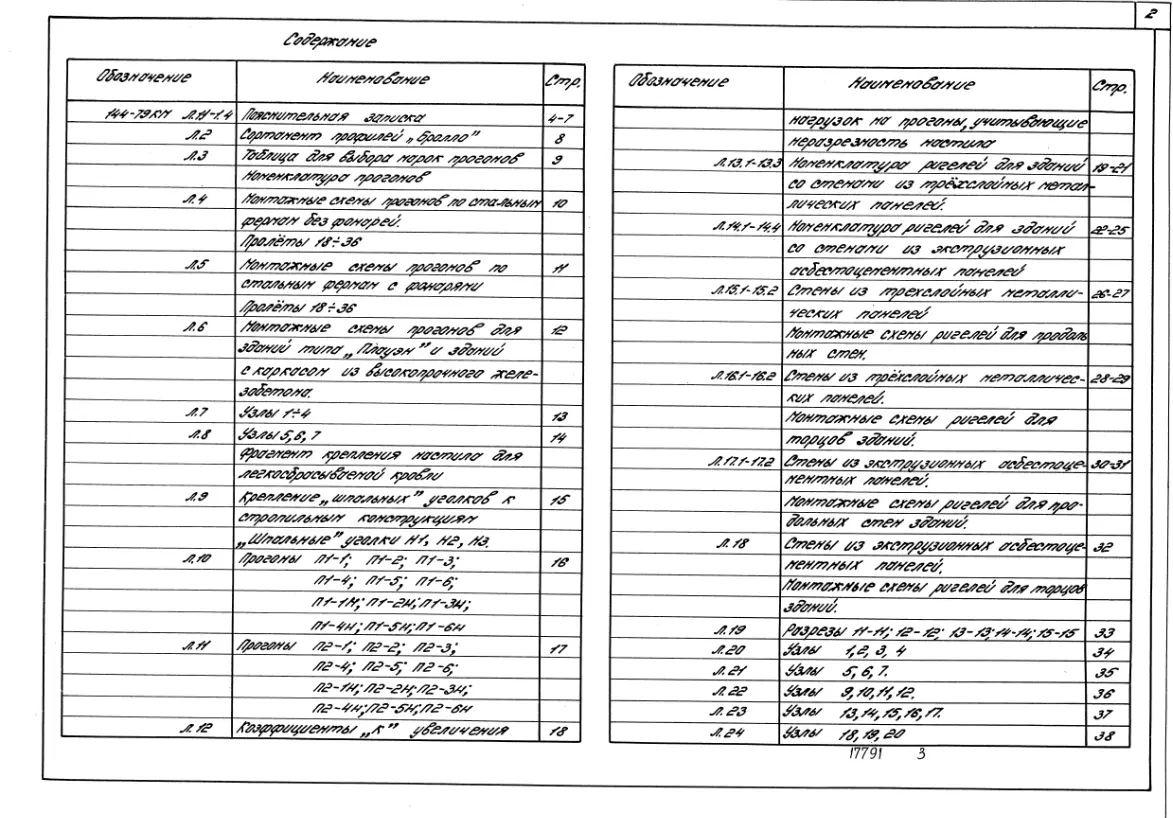 2
Содержание
Обозначение Наименование Стр.
144-79КМ Л.1.1-1.4 Пояснительная записка 4-7
Л.2 Сортамент профилей „Гралло” 8
Л.3 Таблица для выбора марок прогонов 9
Номенклатура прогонов
Л.4 Монтажные схемы прогонов по стальным 10
фермам без фонарей.
Пролёты 18÷36
Л.5 Монтажные схемы прогонов по 11
стальным фермам с фонарями
Пролёты 18÷36
Л.6 Монтажные схемы прогонов для 12
зданий типа „Плауэн” и зданий
с каркасом из высокопрочного желе-
зобетона.
Л.7 Узлы 1÷4 13
Л.8 Узлы 5, 6, 7 14
Фрагмент крепления настила для
легкосбрасываемой кровли
Л.9 Крепление „шпальных” уголков к 15
стропильным конструкциям
„Шпальные” уголки Н1, Н2, Н3.
Л.10 Прогоны П1-1; П1-2; П1-3; 16
П1-4; П1-5; П1-6;
П1-1Н; П1-2Н; П1-3Н;
П1-4Н; П1-5Н; П1-6Н
Л.11 Прогоны П2-1; П2-2; П2-3; 17
П2-4; П2-5; П2-6;
П2-1Н; П2-2Н; П2-3Н;
П2-4Н; П2-5Н; П2-6Н
Л.12 Коэффициенты „К” увеличения 18
Обозначение Наименование Стр.
нагрузок на прогоны, учитывающие
неразрезность настила
Л.13.1-13.3 Номенклатура ригелей для зданий 19-21
со стенами из трёхслойных метал-
лических панелей.
Л.14.1-14.4 Номенклатура ригелей для зданий 22-25
со стенами из экструзионных
асбестоцементных панелей
Л.15.1-15.2 Стены из трехслойных металли- 26-27
ческих панелей
Монтажные схемы ригелей для продоль
ных стен.
Л.16.1-16.2 Стены из трёхслойных металличес- 28-29
ких панелей.
Монтажные схемы ригелей для
торцов зданий.
Л.17.1-17.2 Стены из экструзионных асбестоце- 30-31
ментных панелей.
Монтажные схемы ригелей для про-
дольных стен зданий.
Л.18 Стены из экструзионных асбестоце- 32
ментных панелей.
Монтажные схемы ригелей для торцов
зданий.
Л.19 Разрезы 11-11; 12-12; 13-13; 14-14; 15-15 33
Л.20 Узлы 1, 2, 3, 4 34
Л.21 Узлы 5, 6, 7. 35
Л.22 Узлы 9, 10, 11, 12. 36
Л.23 Узлы 13, 14, 15, 16, 17. 37
Л.24 Узлы 18, 19, 20 38
17791 3